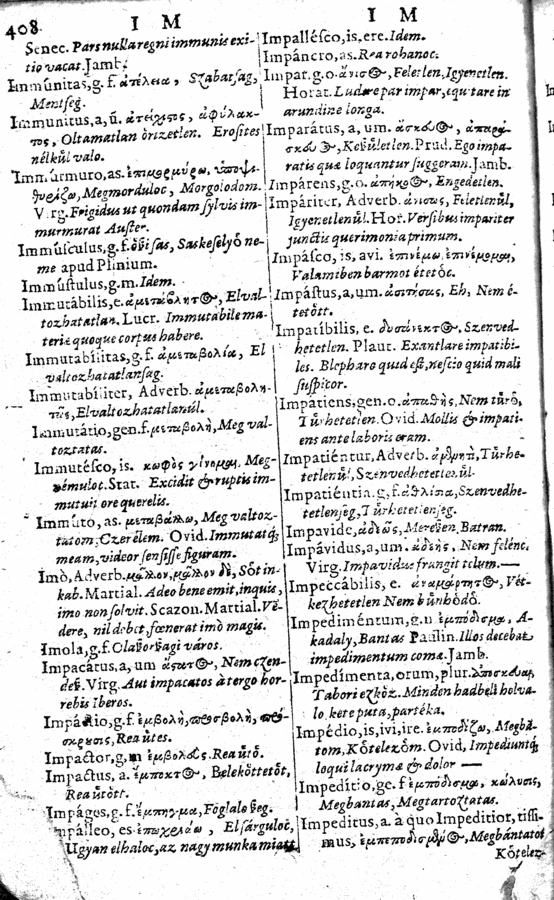 408
I M
I M
Senec. Pars nulla regni immunis exi-
tio vacat. Jamb.
Immúnitas, g. f. ἀτέλεια, Szabatſag,
Mentſeg.
Immunitus, a, ũ. ἀτείχιςος, ἀφύλακ-
τος, Oltamatlan őrizetlen. Eroſites
nélkűl valo.
Immúrmuro, as. ἐπιμορμύρω, ὑποψι-
θυρίζω, Megmorduloc, Morgolodom.
Virg. Frigidus ut quondam ſylvis im-
murmurat Auſter.
Immúſculus, g. f. Saskeſelyő ne-
me apud Plinium.
Immúſtulus, g. m. Idem.
Immutábilis, e. ἀμετάβλητος, El val-
tozhatatlan. Lucr. Immutabile ma-
teriæ quoque corpus habere.
Immutabílitas, g. f. ἀμεταβολία, El
valtozhatatlanſag.
Immutabíliter, Adverb. ἀμεταβολη-
τῶς, El valtozhatatlanúl.
Immutátio, gen. f. μεταβολὴ, Meg val-
toztatas.
Immutéſco, is. κωφὸς γίνομαι, Meg-
némulot. Stat. Excidit & ruptis im-
mutuit ore querelis.
Immúto, as. μεταβάλλω, Meg valtoz-
tatom, Czerélem. Ovid. Immutatq́;
meam, videor ſenſiſſe figuram.
Imò, Adverb. μᾶλλον, μᾶλλον δὲ, Sőt in-
kab. Martial. Adeo bene emit, inquis,
imo non ſolvit. Scazon. Martial. Vé-
dere, nil debet, fœnerat imò magis.
Imola, g. f. Olaßorßagi város.
Impacátus, a, um Nem czen-
deß. Virg. Aut impacatos à tergo hor-
rebis Iberos.
Impáctio, g. f. ἐμβολὴ, προσβολὴ, πρό-
σκρουσις, Rea űtes.
Impactor, g. m ἐμβολεὺς. Rea űtő.
Impáctus, a. Belekőttetőt,
Rea űtőtt.
Impáges, g. f. ἔμπηγμα, Foglalo ßeg.
Impálleo, es. ἐπωχριάω, El ſárguloc,
Ugyan elhaloc, az nagy munka miatt.
Impalléſco, is, ere. Idem.
Impáncro, as. Rea rohanoc.
Impar, g. o. ἄνισος, Feletlen, Igyenetlen.
Horat. Ludere par impar, equitare in
arundine longa.
Imparátus, a, um. ἄσκευος, ἀπαρά-
σκευος, Keßűletlen. Prud. Ego impa-
ratis quæ loquantur ſuggeram. Jamb.
Impárens, g. o. Engedetlen.
Impáriter, Adverb. ἀνίσως, Feletlenűl,
Igyenetlenűl. Hor. Verſibus impariter
junctis querimonia primum.
Impáſco, is, avi. ἐπινέμω, ἐπινέμομαι,
Valamiben barmot étetőc.
Impáſtus, a, um. Eh, Nem é-
tetőtt.
Impatíbilis, e. δυσάνεκτος, Szenved-
hetetlen. Plaut. Exantlare impatibi-
les. Blepharo quid eſt, neſcio quid mali
ſuſpicor.
Impatiens, gen. o. ἀπαθὴς, Nem tűrő,
Tűrhetetlen. Ovid. Mollis & impati-
ens ante laboris eram.
Impatiénter, Adverb. Tűrhe-
tetlenűl, Szenvedhetetlenűl.
Impatiéntia, g. f. Szenvedhe-
tetlenſeg, Tűrhetetlenſeg.
Impavide, ἀδεῶς, Mereßen, Batran.
Impávidus, a, um. ἀδεὴς, Nem félénc.
Virg. Impavidus frangit telum.—
Impeccábilis, e. ἀναμάρτητος, Vét-
kezhetetlen Nem bűnhődő.
Impediméntum, g. n ἐμπόδισμα, A-
kadaly, Bantas Paulin. Illos decebat
impedimentum comæ. Jamb.
Impedímenta, orum, plur. ἀποσκευαὶ,
Tabori ezkőz. Minden hadbeli holva-
lo, kete puta, partéka.
Impédio, is, ivi, ire. ἐμποδίζω, Megbá-
tom, Kőtelezőm. Ovid, Impediuntq́;
loqui lacrymæ & dolor —
Impedítio, ge. f ἐμπόδισμα, κώλυσις,
Megbantas, Megtartoztatas.
Impeditus, a. à quo Impeditior, tiſſi-
mus, Megbántatot
Kőtelez-